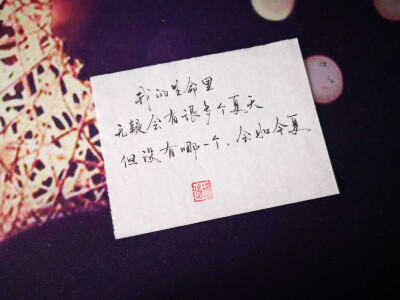 我的生命里
无疑会有很多个夏天
但没有哪一个，会如今夏